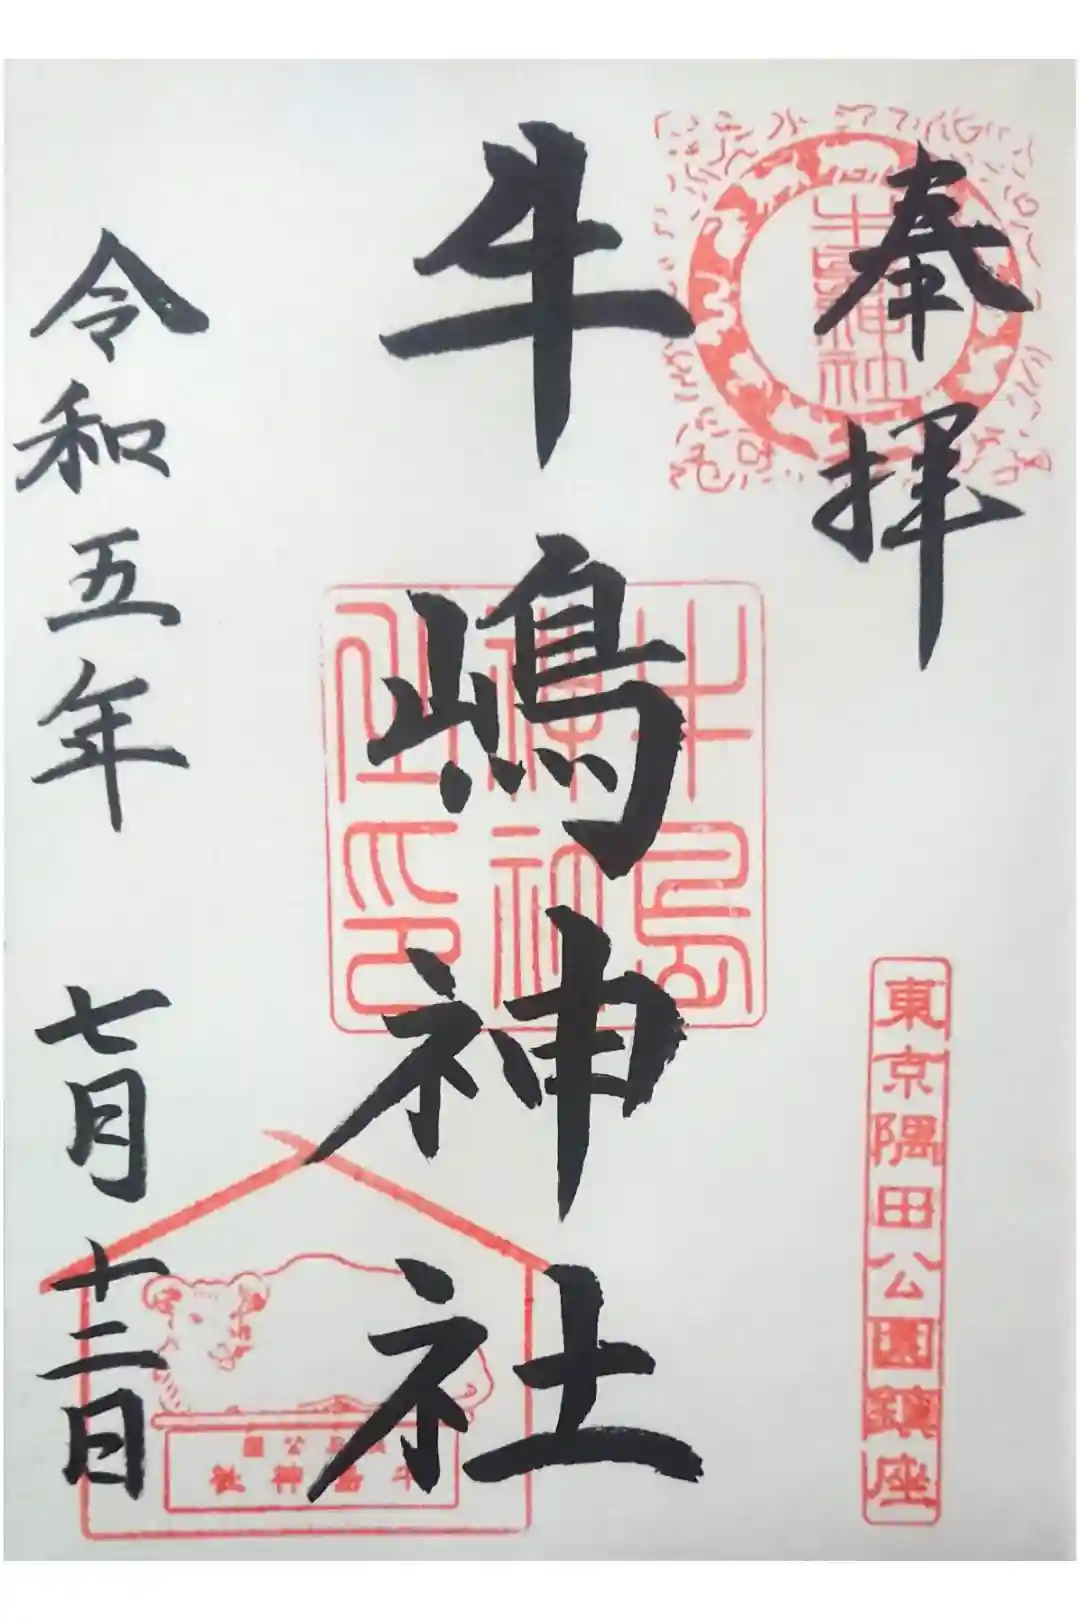 奉拝
牛嶋神社
令和五年 七月十二日
牛嶋神社
牛嶋神社印
東京隅田公園鎮座
牛嶋神社